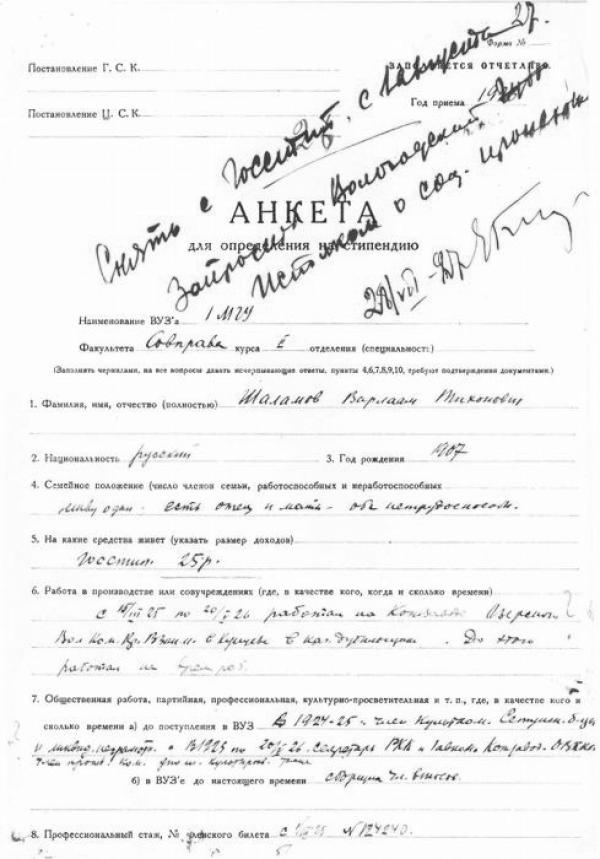 Форма №
Постановление Г. С. К.
ЗАПОЛНЯЕТСЯ ОТЧЕТЛИВО
Год приема 192
Постановление Ц. С. К.
Снять с Госстип. с 1 августа 27.
Запросить Вологодский Губ
Исполком о соц. происхожд
28/VII-27.
АНКЕТА
для определения на стипендию
Наименование ВУЗ'а 1 МГУ
Факультета Совправа курса I отделения (специальност:)
(Заполнять чернилами, на все вопросы давать исчерпывающие ответы, пункты 4,6,7,8,9,10, требуют подтверждения документами.)
1. Фамилия, имя, отчество (полностью) Шаламов Варлаам Тихонович
2. Национальность русский 3. Год рождения 1907
4. Семейное положение (число членов семьи, работоспособных и неработоспособных
живу один - есть отец и мать - оба нетрудоспособн.
5. На какие средства живет (указать размер доходов)
Госстип. 25 р.
6. Работа в производстве или совучреждениях (где, в качестве кого, когда и сколько времени)
по 20/I 26 работал на Кожзаводе Озерск.
в Кунцеве в кач. дубильщика. До этого
работал на
7. Общественная работа, партийная, профессиональная, культурно-просветительная и т. п., где, в качестве кого и
сколько времени а) до поступления в ВУЗ В 1924-25 - член Культком.
и ликвид. неграмотн. В 1925 по 26. Секретарь РКК и
б) в ВУЗ'е до настоящего времени сборщик чл. взносов.
8. Профессиональный стаж, № членского билета с 25 N 124240.